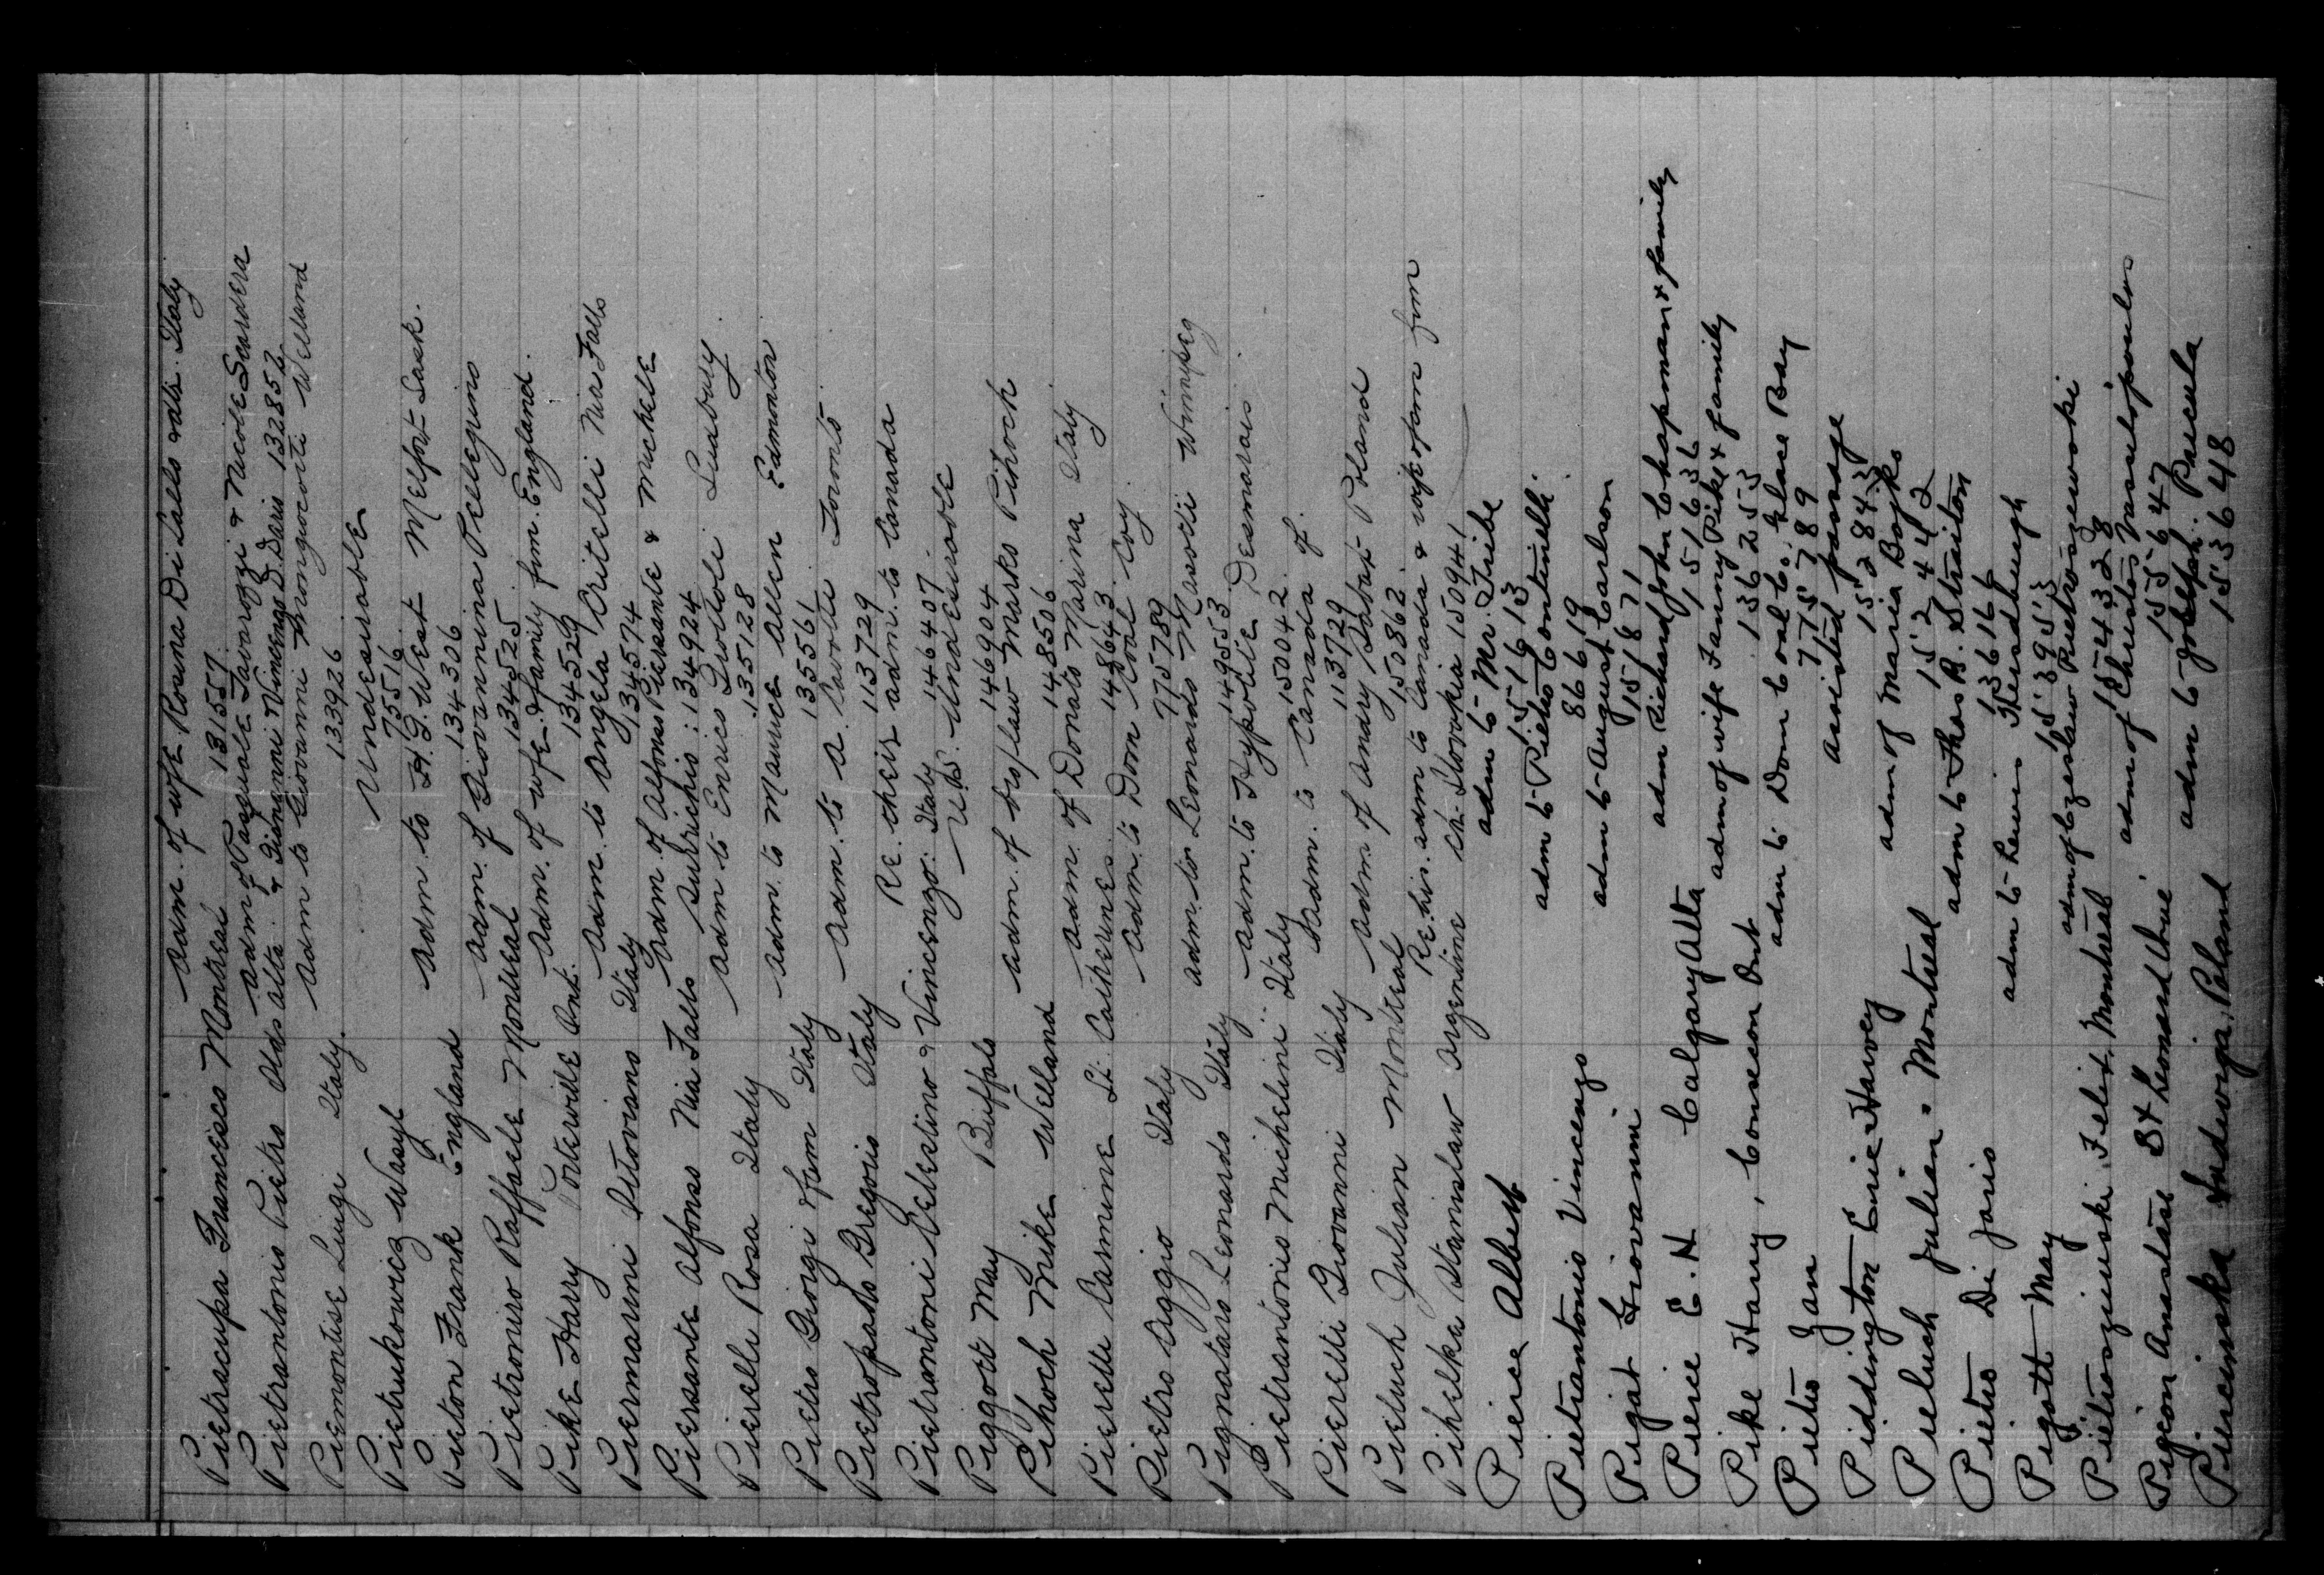 Pietracupa Francesco Montreal adm. of wfe Rosina Di Lallo Italy
131557
Pietrantonio Pietro Olds Alta. adm of Pasquale Tavarozzi & Nicole Scardera
& Giovanni Vincenzo D. Daris 132852
Piemontise Luigi Italy. adm to Giovanni Mongiovetti Welland
133926
Pietrukowicz Wasyl Undesirable
75516
Pieton Frank England adm. to H.G. West Melfort Sask.
134306
Pietroniro Raffaele Montreal adm. of Giovannina Pelleguino
134525
Pike Harry Porterville Ont. adm. of wfe. & family from England.
134529
Piermarini Ottoviano Italy adm. to Angela Critelli Nia Falls
134574
Piersante Alfonso Nia Falls adm. of Alfonso Piersante & Michele
Surrichio : 134924
Pierelli Rosa Italy adm to Enrico Grottoli Sudbury
135128
Pietro Giorgi & fam Italy adm. to Maurice Allen Edmonton
135561
Pietropaolo Gregorio Italy adm. to A. Carotti Toronto
113729
Pietrantoni Celestino & Vincenzo. Italy Re. their adm. to Canada
146407
Piggott May Buffalo U.S. Undesirable
146904
Pihoch Mike Welland adm. of Marko Pihoch
148506
Pieretti Carmine St. Catherines adm. of Donato Marina Italy
148643
Pietro Oggio Italy adm. to Dom Coal Coy.
775789
Pignataro Leonardo Italy adm. to Leonardo Winnipeg
149553
Pietrantonio Michelini Italy adm. to Hypolite Desmarais
150042
Pieretti Giovanni Italy adm. to Canada of.
113729
Pietuch Julian Montreal adm of Andry Poland
150862
Pihelka Stanislaw Argentine Re. his. adm to Canada & wife & fam from
Ch. Slovakia 150941
Pierce Albert adm to Mr. Tribe
151613
Pietrantonio Vincenzo adm to Pietro Continelli
86619
Pigat Giovanni adm to August Carlson
151871
Pierce E. H Calgary Alta adm Richard John Chapman & family
151636
Pike Harry, Consecon Ont adm of wife Fanny Pike & family
136255
Pietro Jan adm to Dom Coal Co. Glace Bay
775789
Piddington Eric Harvey assisted passage
152843
Pieluch Julian. Montreal adm of Maria Bojko
152442
Pietro Di Jorio adm to Thos B. Straiton
136166
Pigott May adm to Lewis Headhuegh
153953
Pietroszieuski Felix Montreal adm of Czeslaw Pietroszewski
154328
Pigeon Anastase St Leonard adm of Christos Vassilopoulos
155647
Piescinska Jadwiga, Poland adm to Joseph Piecula
153648